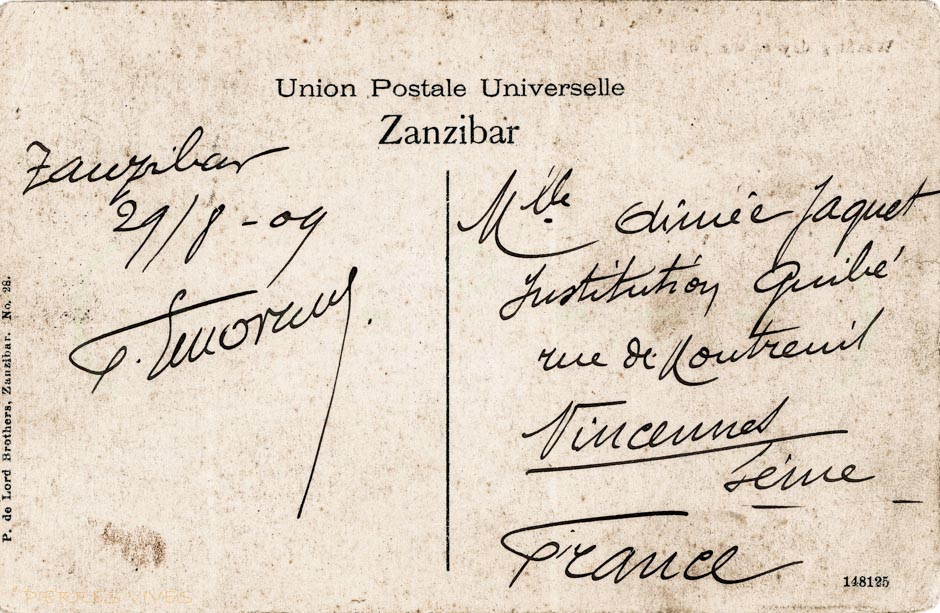 Union Postale Universelle
Zanzibar
Zanzibar
29/8-09
Mlle Aimée Jaquet
Institution Quibé
rue de Montreuil
Vincennes
Seine
France
P. de Lord Brothers, Zanzibar. No. 28.
148125